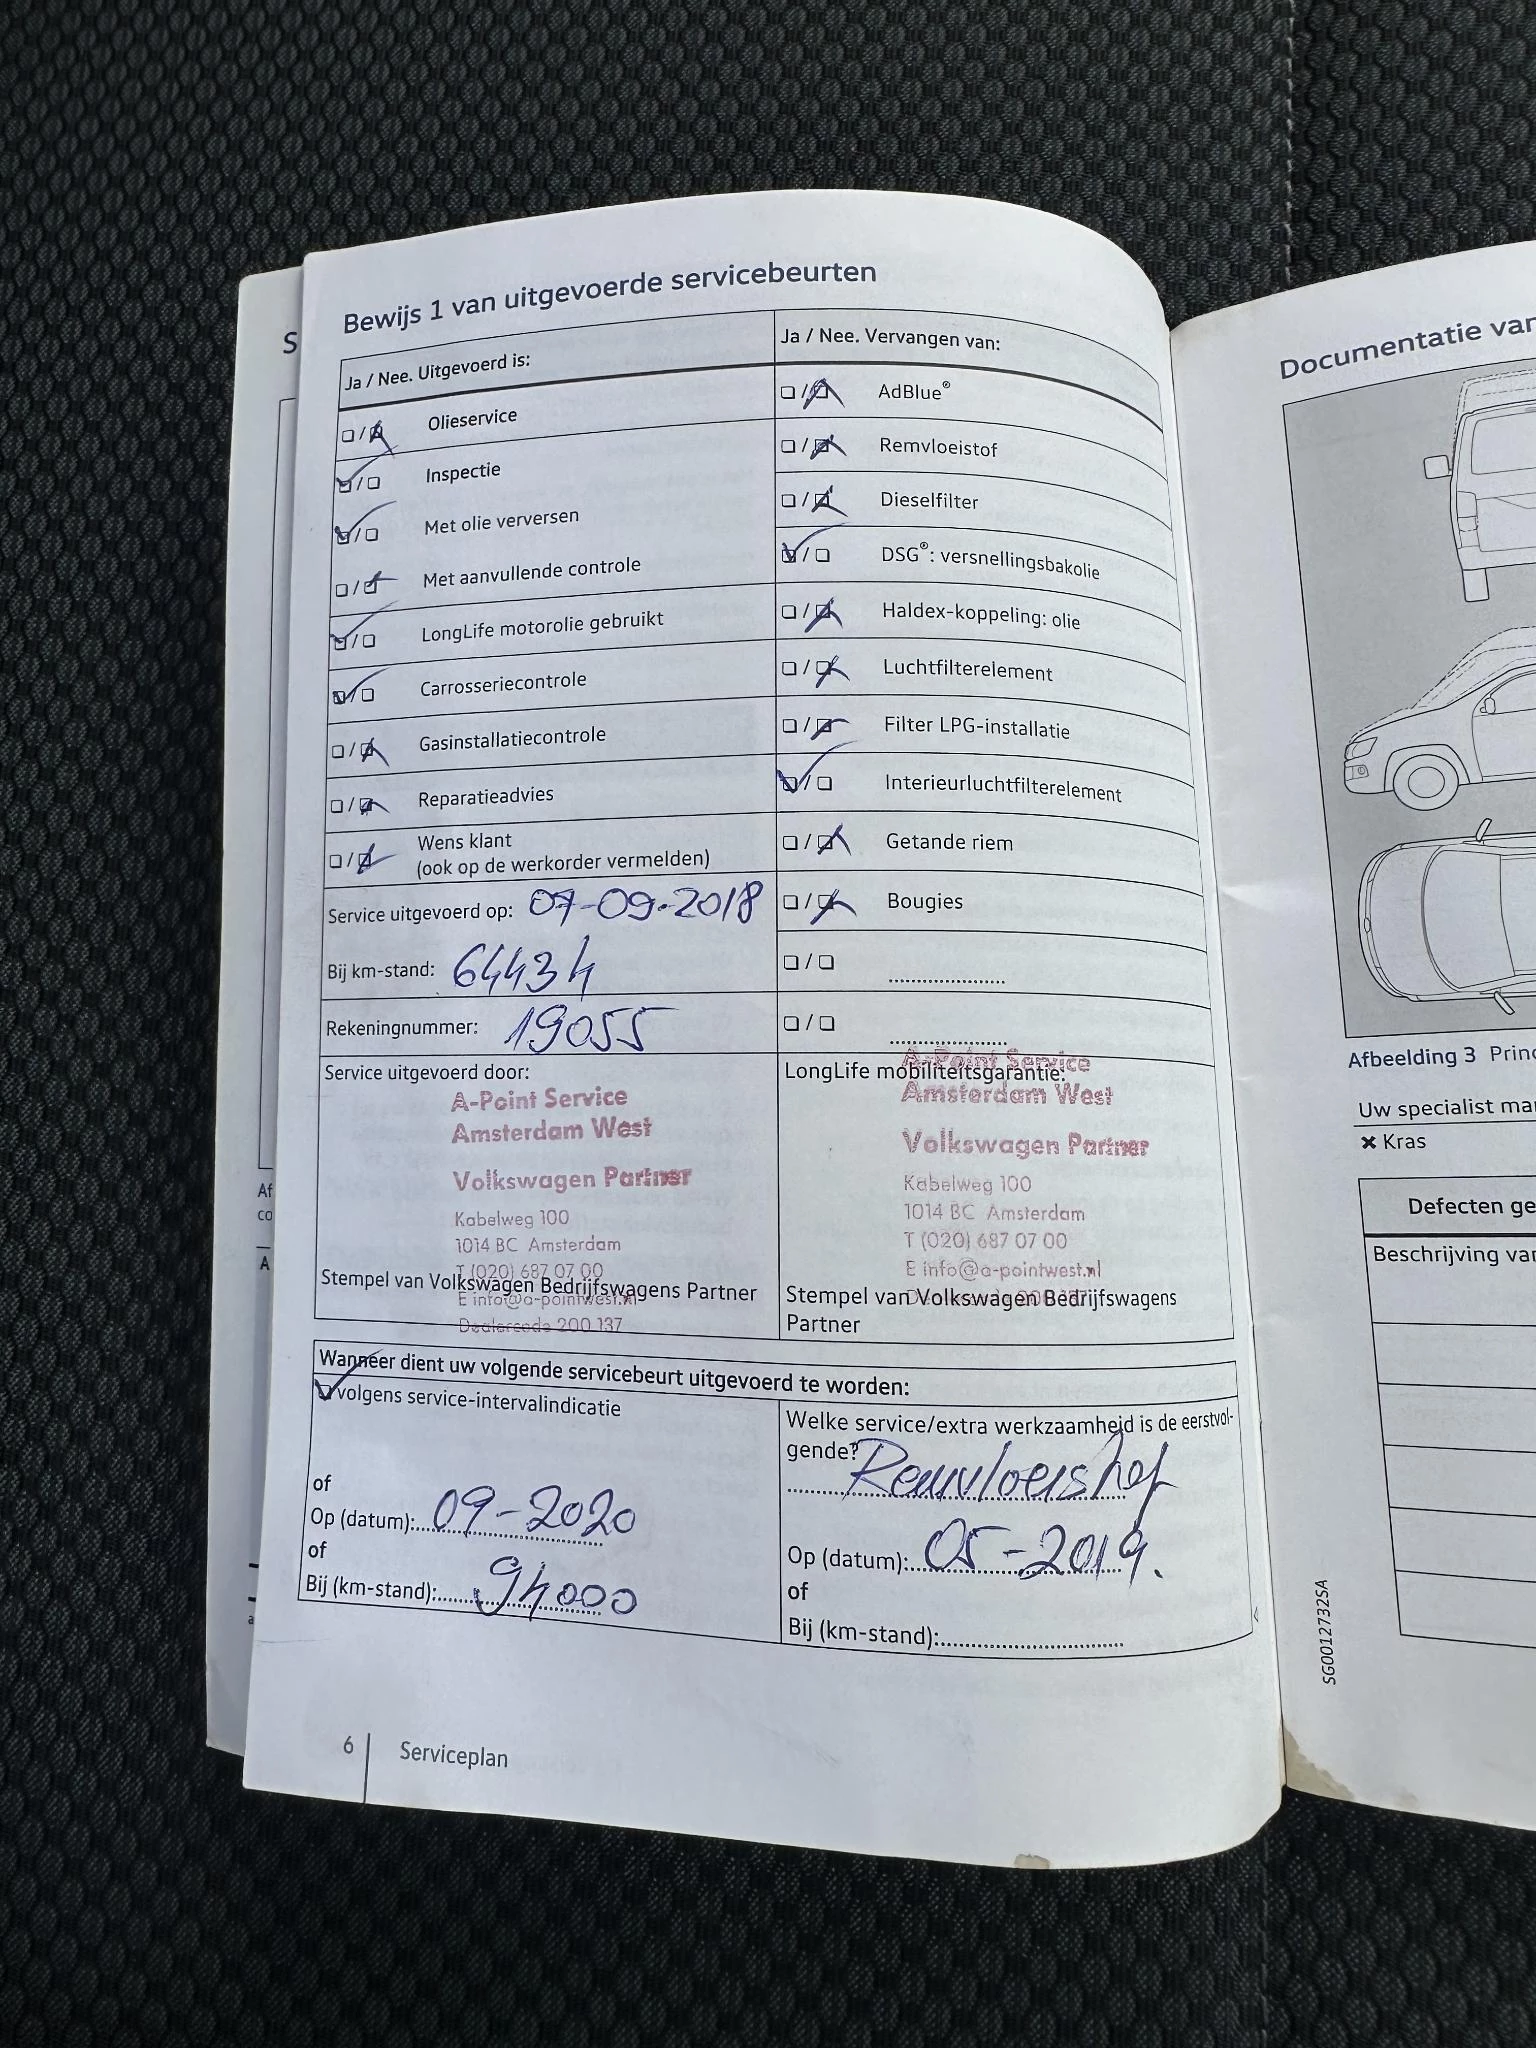 Bewijs 1 van uitgevoerde servicebeurten
Ja / Nee. Uitgevoerd is:
Olieservice
Inspectie
Met olie verversen
Met aanvullende controle
LongLife motorolie gebruikt
Carrosseriecontrole
Gasinstallatiecontrole
Reparatieadvies
Wens klant
(ook op de werkorder vermelden)
Service uitgevoerd op: 07-09-2018
Bij km-stand: 64434
Rekeningnummer: 19055
Ja / Nee. Vervangen van:
AdBlue®
Remvloeistof
Dieselfilter
DSG®: versnellingsbakolie
Haldex-koppeling: olie
Luchtfilterelement
Filter LPG-installatie
Interieurluchtfilterelement
Getande riem
Bougies
Service uitgevoerd door:
A-Point Service
Amsterdam West
Volkswagen Partner
Kabelweg 100
1014 BC Amsterdam
T (020) 687 07 00
E info@a-pointwest.nl
Dealercode 200 137
Stempel van Volkswagen Bedrijfswagens Partner
LongLife mobiliteitsgarantie:
A-Point Service
Amsterdam West
Volkswagen Partner
Kabelweg 100
1014 BC Amsterdam
T (020) 687 07 00
E info@a-pointwest.nl
Stempel van Volkswagen Bedrijfswagens
Partner
Wanneer dient uw volgende servicebeurt uitgevoerd te worden:
volgens service-intervalindicatie
of
Op (datum): 09-2020
of
Bij (km-stand): 94000
Welke service/extra werkzaamheid is de eerstvol-
gende?
Op (datum): 05-2019.
of
Bij (km-stand):
6 Serviceplan
Documentatie van
Afbeelding 3
Uw specialist
✖ Kras
Defecten
Beschrijving
SG0012732SA